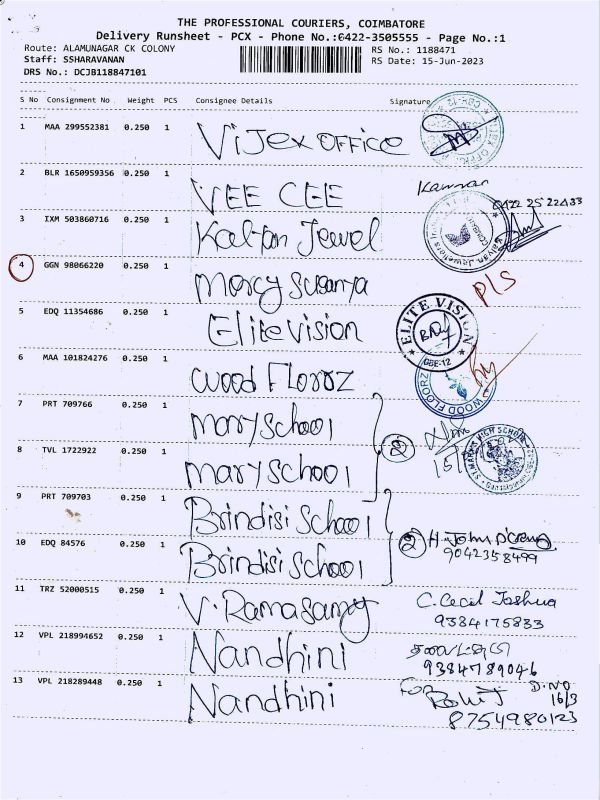 THE PROFESSIONAL COURIERS, COIMBATORE
Delivery Runsheet - PCX - Phone No.:0422-3505555 - Page No.:1
Route: ALAMUNAGAR CK COLONY RS No.: 1188471
Staff: SSHARAVANAN RS Date: 15-Jun-2023
DRS No.: DCJB118847101
S No Consignment No Weight PCS Consignee Details Signature
1 MAA 299552381 0.250 1 Vijex OFFICE
2 BLR 1650959356 0.250 1 VEE CEE
3 IXM 503860716 0.250 1 Kalyan Jewel 0422 25 22433
4 GGN 98066220 0.250 1 Mercy Susanya P/S
5 EDQ 11354686 0.250 1 Elite vision ELITE VISION CBE-12
6 MAA 101824276 0.250 1 Wood Florrz WOOD FLOORZ
7 PRT 709766 0.250 1 Mary School
8 TVL 1722922 0.250 1 Mary School 2
9 PRT 709703 0.250 1 Brindisi School
10 EDQ 84576 0.250 1 Brindisi School 2 H. John
9042358499
11 TRZ 52000515 0.250 1 V. Ramasamy C. Cecil Joshua
9384175833
12 VPL 218994652 0.250 1 Nandhini
9384789046
13 VPL 218289448 0.250 1 Nandhini For Rohit J D.NO 16/3
8754980123